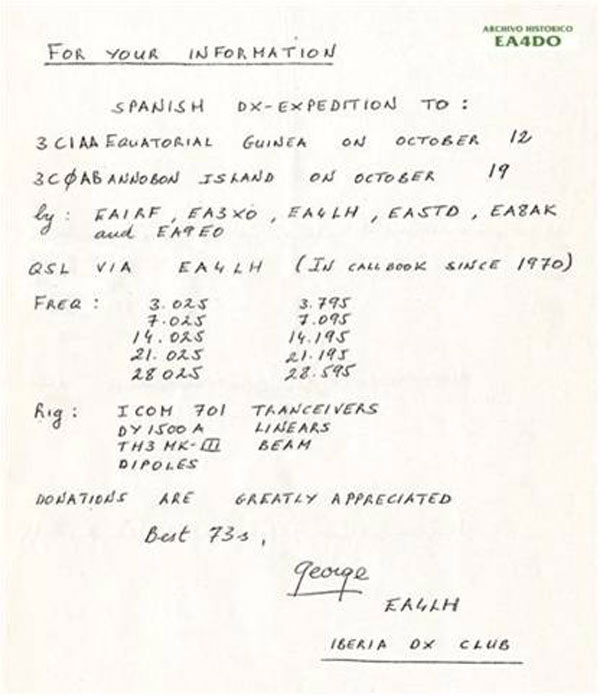 ARCHIVO HISTORICO
EA4DO
FOR YOUR INFORMATION
SPANISH DX-EXPEDITION TO :
3C1AA EQUATORIAL GUINEA ON OCTOBER 12
3CØAB ANNOBON ISLAND ON OCTOBER 19
by : EA1RF , EA3XO , EA4LH , EA5TD , EA8AK
and EA9EO
QSL VIA EA4LH (IN CALLBOOK SINCE 1970)
FREQ : 3.025 3.795
7.025 7.095
14.025 14.195
21.025 21.195
28025 28.595
Rig : ICOM 701 TRANCEIVERS
DY1500A LINEARS
TH3 MK-III BEAM
DIPOLES
DONATIONS ARE GREATLY APPRECIATED
Best 73s,
George
EA4LH
IBERIA DX CLUB